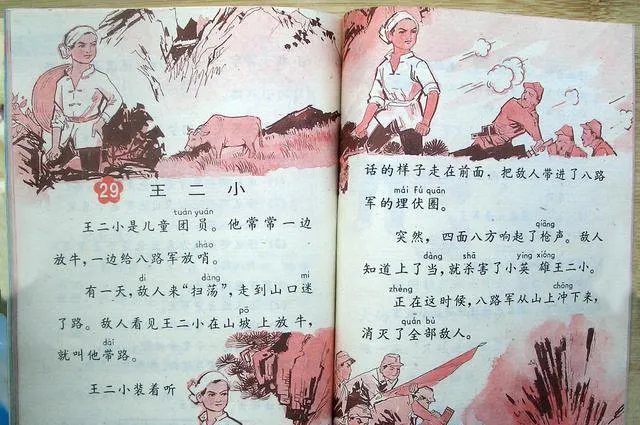 29 王二小
tuán yuán
王二小是儿童团员。他常常一边
shào
放牛，一边给八路军放哨。
dí dàng mí
有一天，敌人来“扫荡”，走到山口迷
pō
了路。敌人看见王二小在山坡上放牛，
dài
就叫他带路。
王二小装着听
话的样子走在前面，把敌人带进了八路
mái fú quān
军的埋伏圈。
qiāng
突然，四面八方响起了枪声。敌人
dàng shā yīng xióng
知道上了当，就杀害了小英雄王二小。
zhèng chōng
正在这时候，八路军从山上冲下来，
quán bù
消灭了全部敌人。